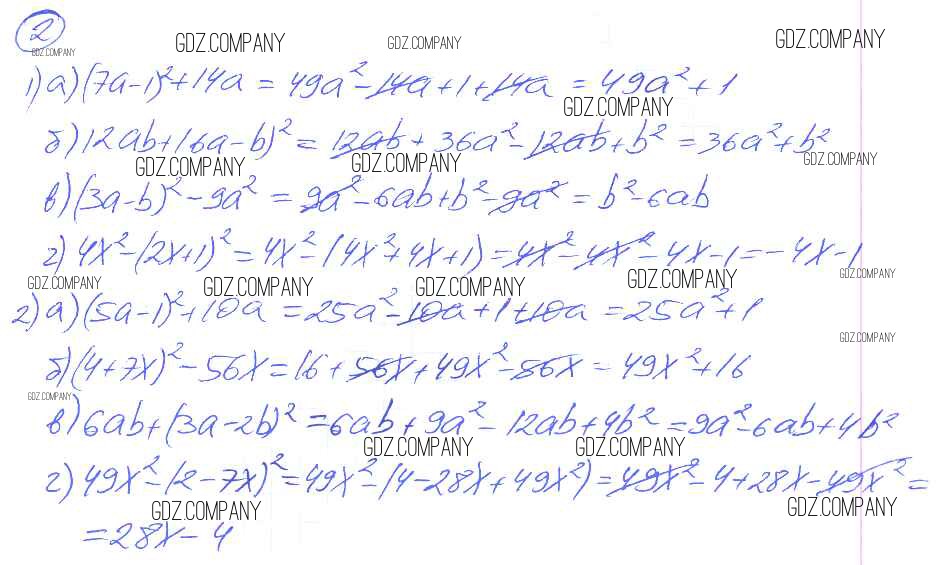 2
GDZ.COMPANY GDZ.COMPANY GDZ.COMPANY GDZ.COMPANY
1) а) (7a-1)² + 14a = 49a² - 14a + 1 + 14a = 49a² + 1
GDZ.COMPANY
б) 12ab + (6a-b)² = 12ab + 36a² - 12ab + b² = 36a² + b²
GDZ.COMPANY GDZ.COMPANY GDZ.COMPANY
в) (3a-b)² - 9a² = 9a² - 6ab + b² - 9a² = b² - 6ab
г) 4x² - (2x+1)² = 4x² - (4x² + 4x + 1) = 4x² - 4x² - 4x - 1 = -4x - 1
GDZ.COMPANY GDZ.COMPANY GDZ.COMPANY GDZ.COMPANY GDZ.COMPANY
2) а) (5a-1)² + 10a = 25a² - 10a + 1 + 10a = 25a² + 1
GDZ.COMPANY
б) (4+7x)² - 56x = 16 + 56x + 49x² - 56x = 49x² + 16
GDZ.COMPANY
в) 6ab + (3a-2b)² = 6ab + 9a² - 12ab + 4b² = 9a² - 6ab + 4b²
GDZ.COMPANY GDZ.COMPANY
г) 49x² - (2-7x)² = 49x² - (4 - 28x + 49x²) = 49x² - 4 + 28x - 49x² =
GDZ.COMPANY GDZ.COMPANY
= 28x - 4